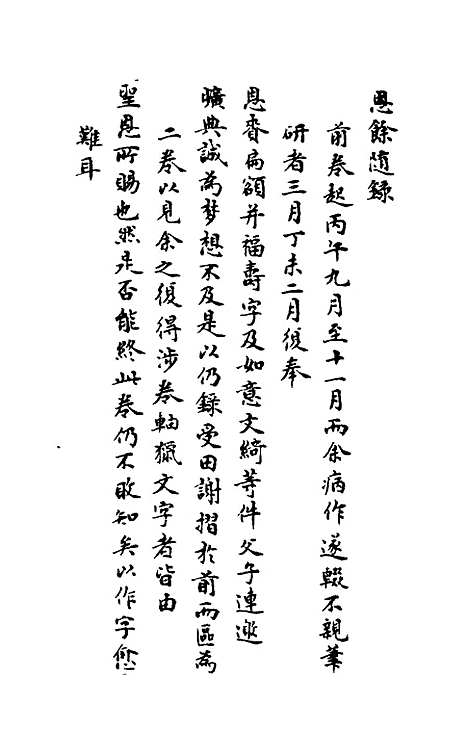 恩餘隨錄
前卷起丙午九月至十一月而余病作遂輟不親筆
研者三月丁未二月復奉
恩賚扁額并福壽字及如意文綺等件父子連邀
曠典誠為夢想不及是以仍錄受田謝摺於前而區為
二卷以見余之復得涉卷軸獵文字者皆由
聖恩所賜也然是否能終此卷仍不敢知矣以作字愈
難耳